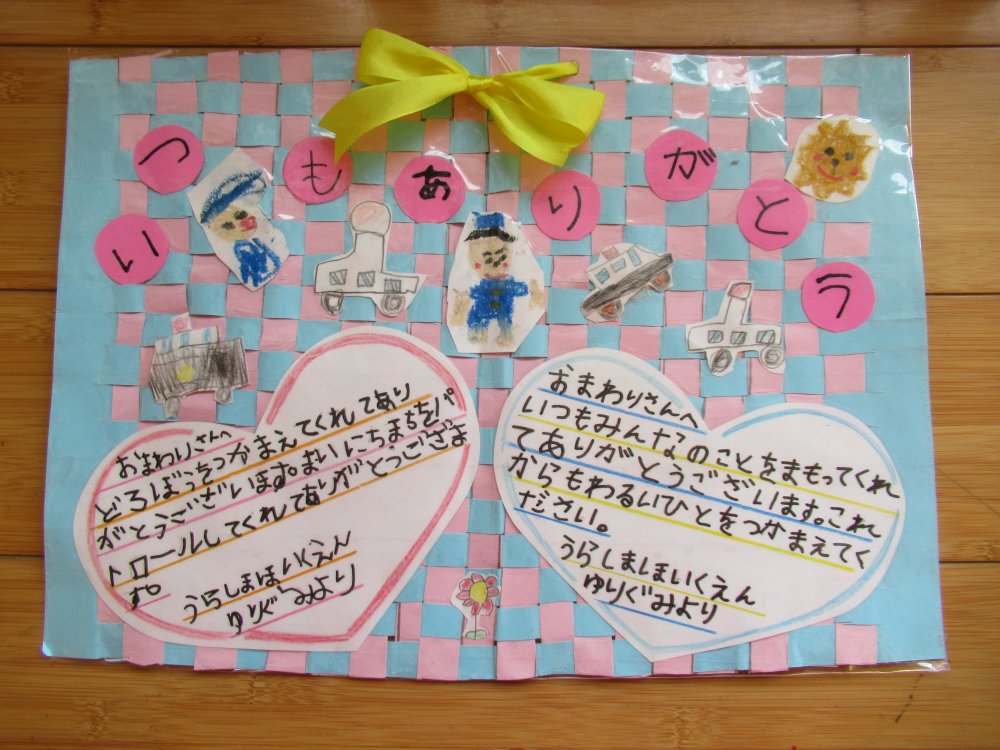 いつもありがとう
おまわりさんへ
どろぼうをつかまえてくれてあり
がとうございます。まいにちまちをパ
トロールしてくれてありがとうございま
す。
うらしまほいくえん
ゆりぐみより
おまわりさんへ
いつもみんなのことをまもってくれ
てありがとうございます。これ
からもわるいひとをつかまえてく
ださい。
うらしまほいくえん
ゆりぐみより